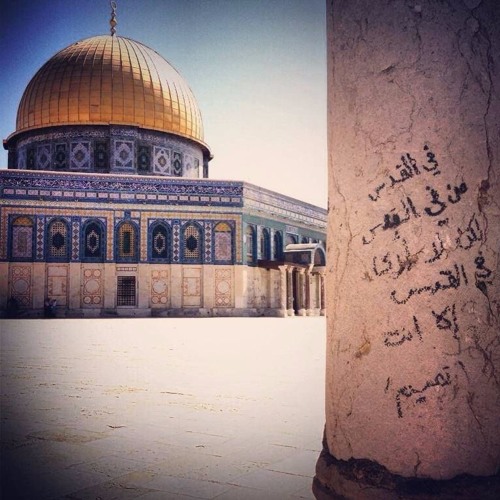 في القدس
من في القدس
لكن لا أرى
في القدس
إلا انت
"تميم"